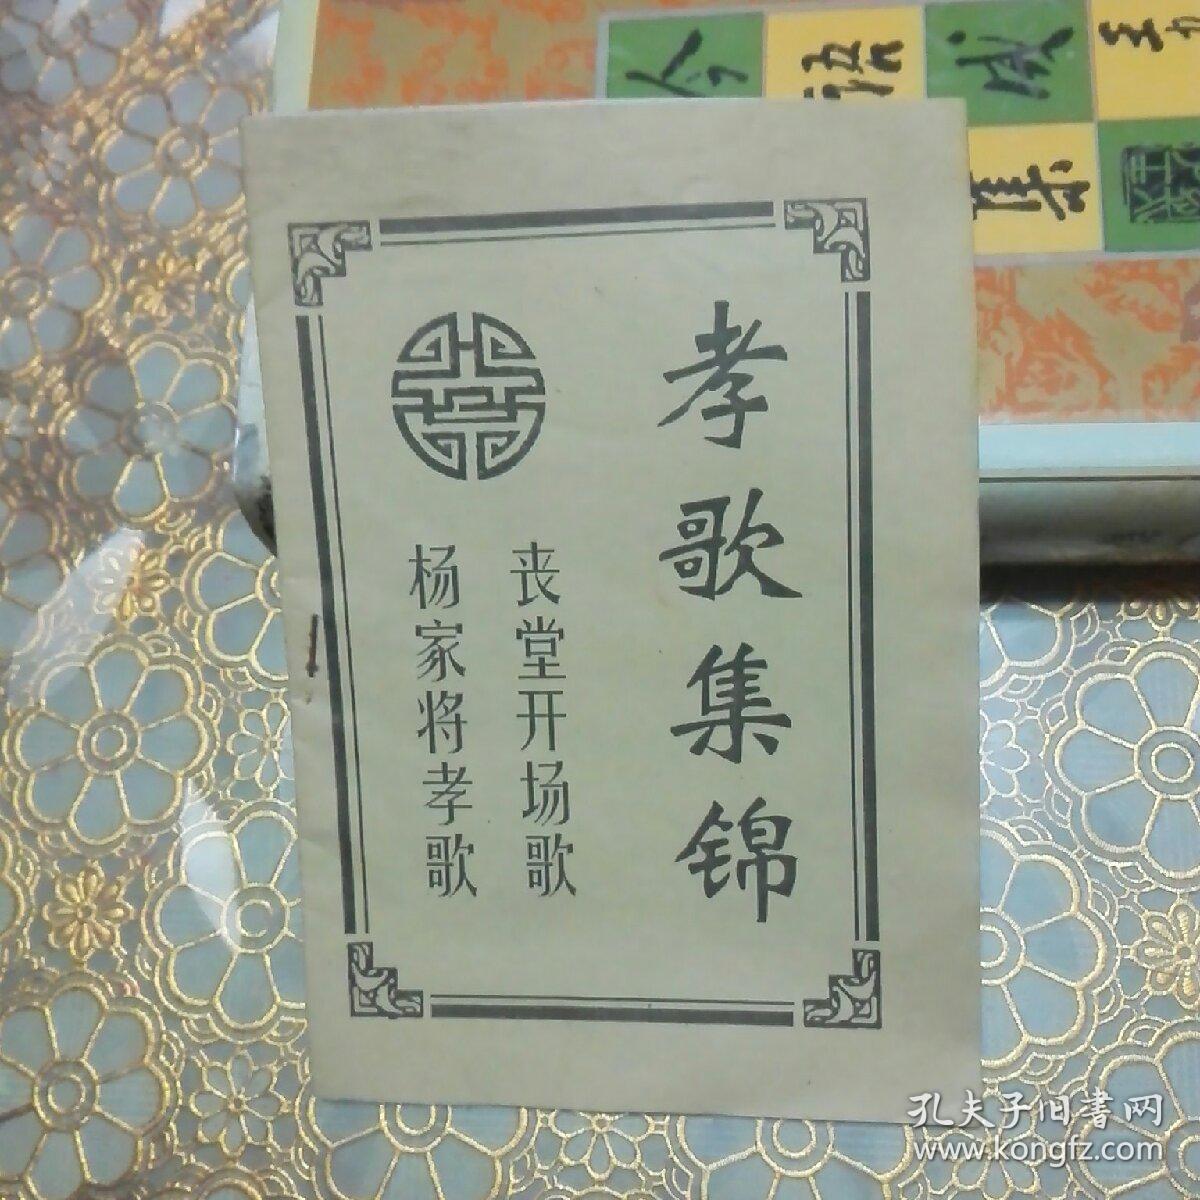 孝歌集锦
丧堂开场歌
杨家将孝歌
今语成
集
孔夫子旧書网
www.kongfz.com